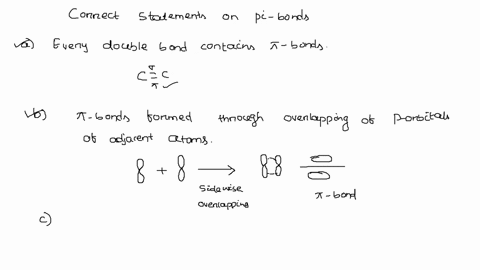 Correct Statements on pi-bonds
✓a) Every double bond contains π-bonds.
C σ = π C ✓
✓b) π-bonds formed through overlapping of p-orbitals
of adjacent atoms.
+
Sidewise
overlapping
π-bond
c)